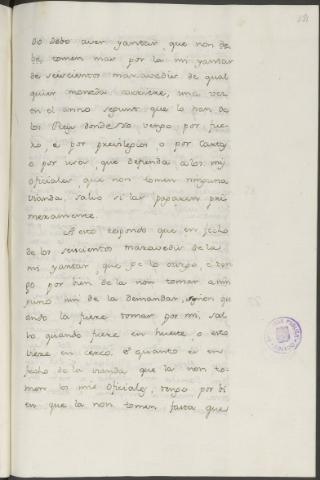 do debo aver yantar, que non de
be tomen mas por la mi yantar
de seiscientos maravedis de qual
quier moneda corriere, una vez
en el anno segunt que lo han de
los Reys donde yo vengo por fue
ro, é por previlegios o por Cartas
o por usos, que defenda a los mis
oficiales, que non tomen ninguna
vianda, salvo si las pagaren pri
meramente.
A esto respondo que en fecho
de los seiscientos maravedis de la
mi yantar, que ge lo otorgo, é ten
go por bien de la non tomar a nin
guno nin de la demandar, sinon qu
ando la fuere tomar por mi, sal
vo quando fuere en hueste, o esto
viere en cerco. E quanto es en
fecho de la vianda que la non to-
men los mis Oficiales, tengo por bi
en que la non tomen, fasta que